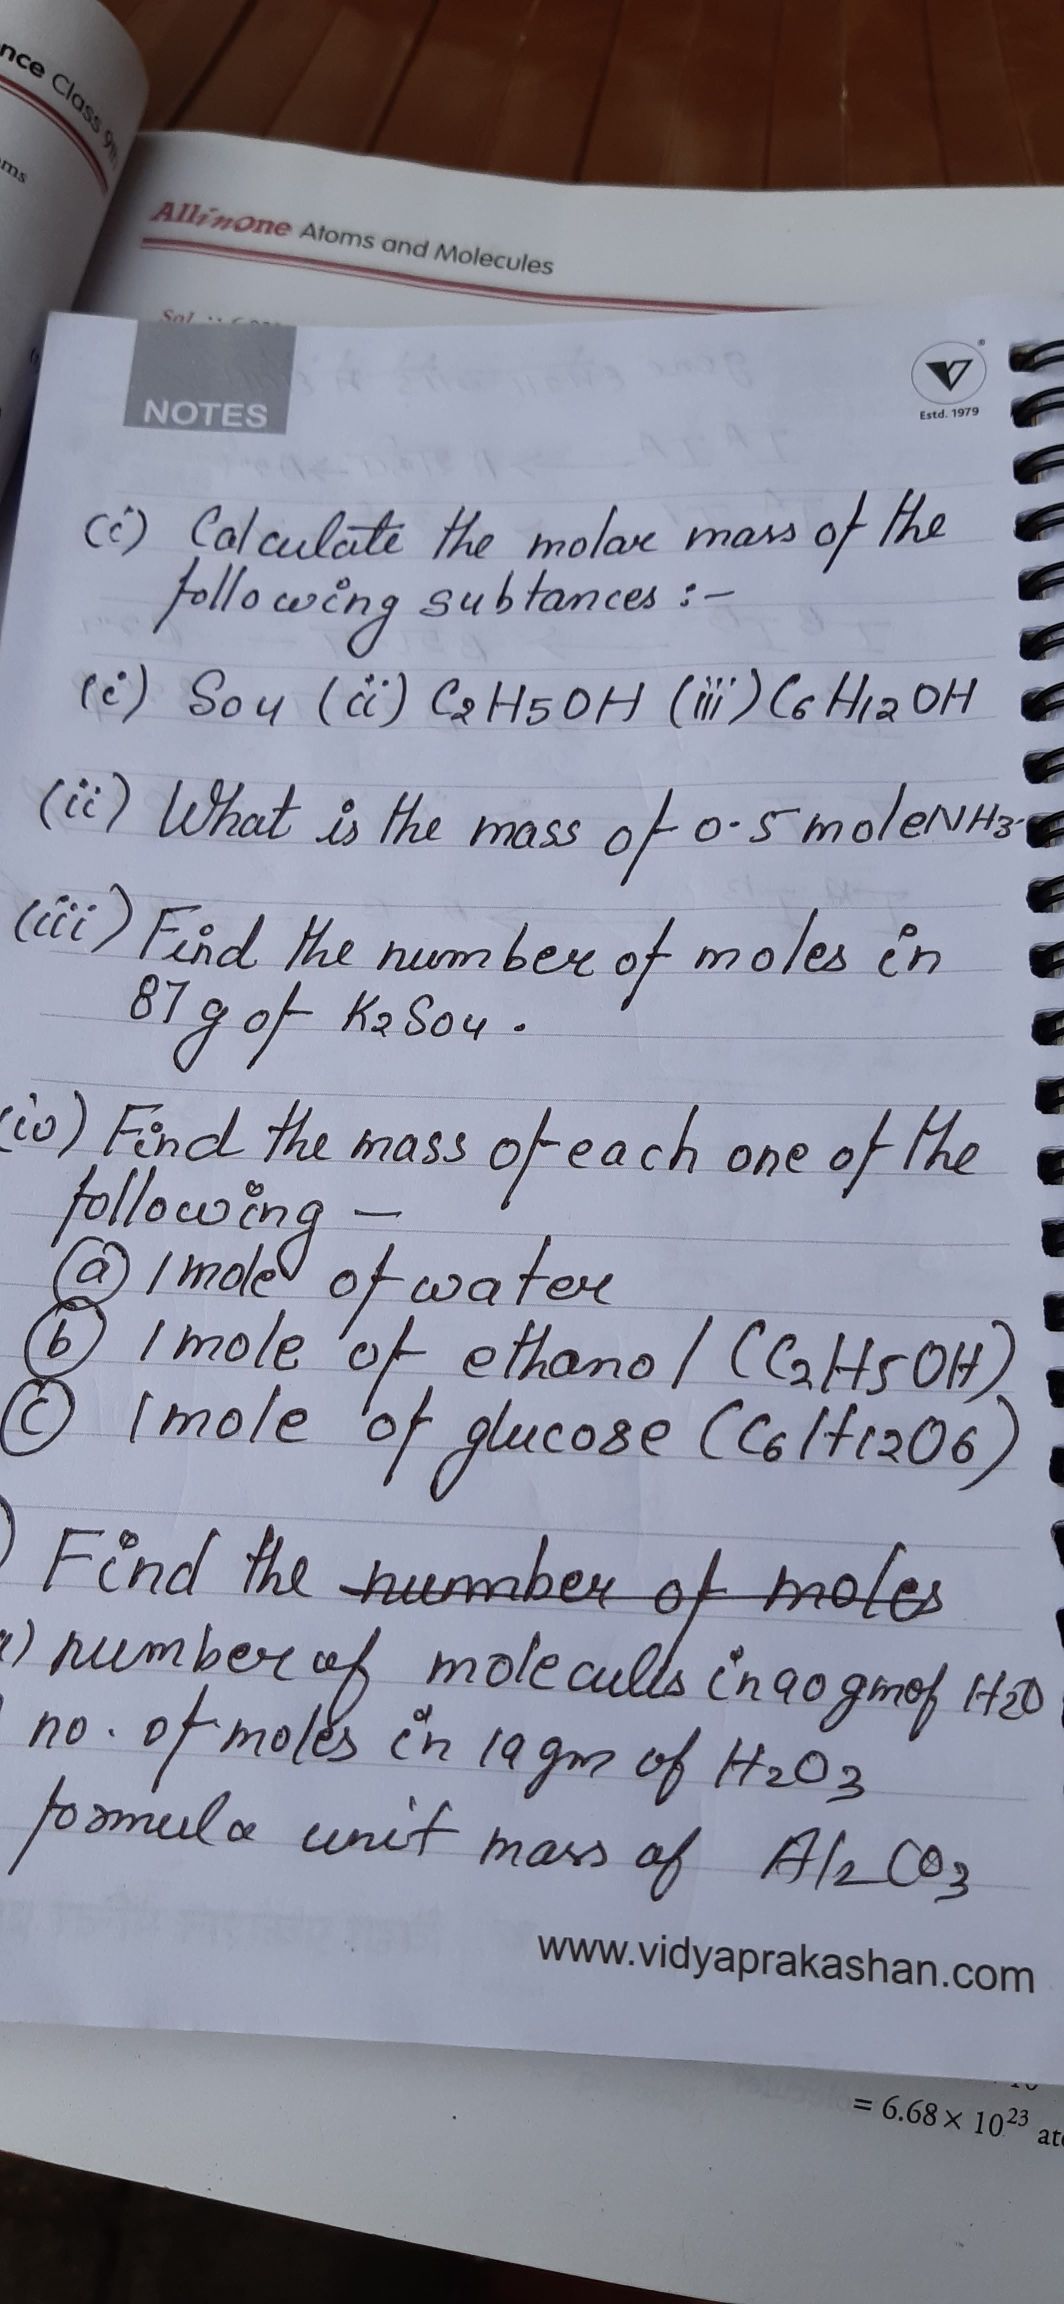 nce Class 9th
oms
Allinone Atoms and Molecules
Sol.
NOTES
Estd. 1979
(i) Calculate the molar mass of the
following subtances :-
(i) SO4 (ii) C2H5OH (iii) C6H12OH
(ii) What is the mass of 0.5 mole NH3.
(iii) Find the number of moles in
87g of K2SO4.
(iv) Find the mass of each one of the
following —
(a) 1 mole of water
(b) 1 mole of ethanol (C2H5OH)
(c) 1 mole of glucose (C6H12O6)
) Find the number of moles
a) number of moleculls in 90 gm of H2O
no. of moles in 19 gm of H2O3
formula unit mass of Al2CO3
www.vidyaprakashan.com
= 6.68 × 10²³ ato